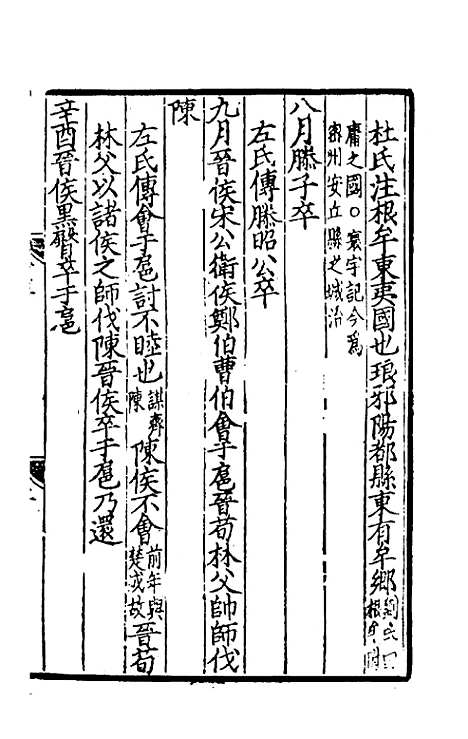 杜氏注根牟東夷國也琅邪陽都縣東有牟鄉劉氏曰根牟附
庸之國○寰宇記今為密州安丘縣之城治
八月滕子卒
左氏傳滕昭公卒
九月晉侯宋公衛侯鄭伯曹伯會于扈晉荀林父帥師伐
陳
左氏傳會于扈討不睦也謀齊陳陳侯不會前年與楚成故晉荀
林父以諸侯之師伐陳晉侯卒于扈乃還
辛酉晉侯黑臀卒于扈